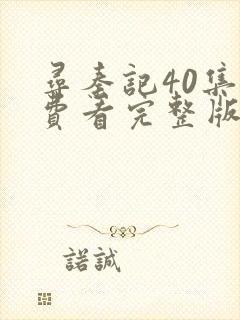 尋秦記40集
費看完整版
諾誠